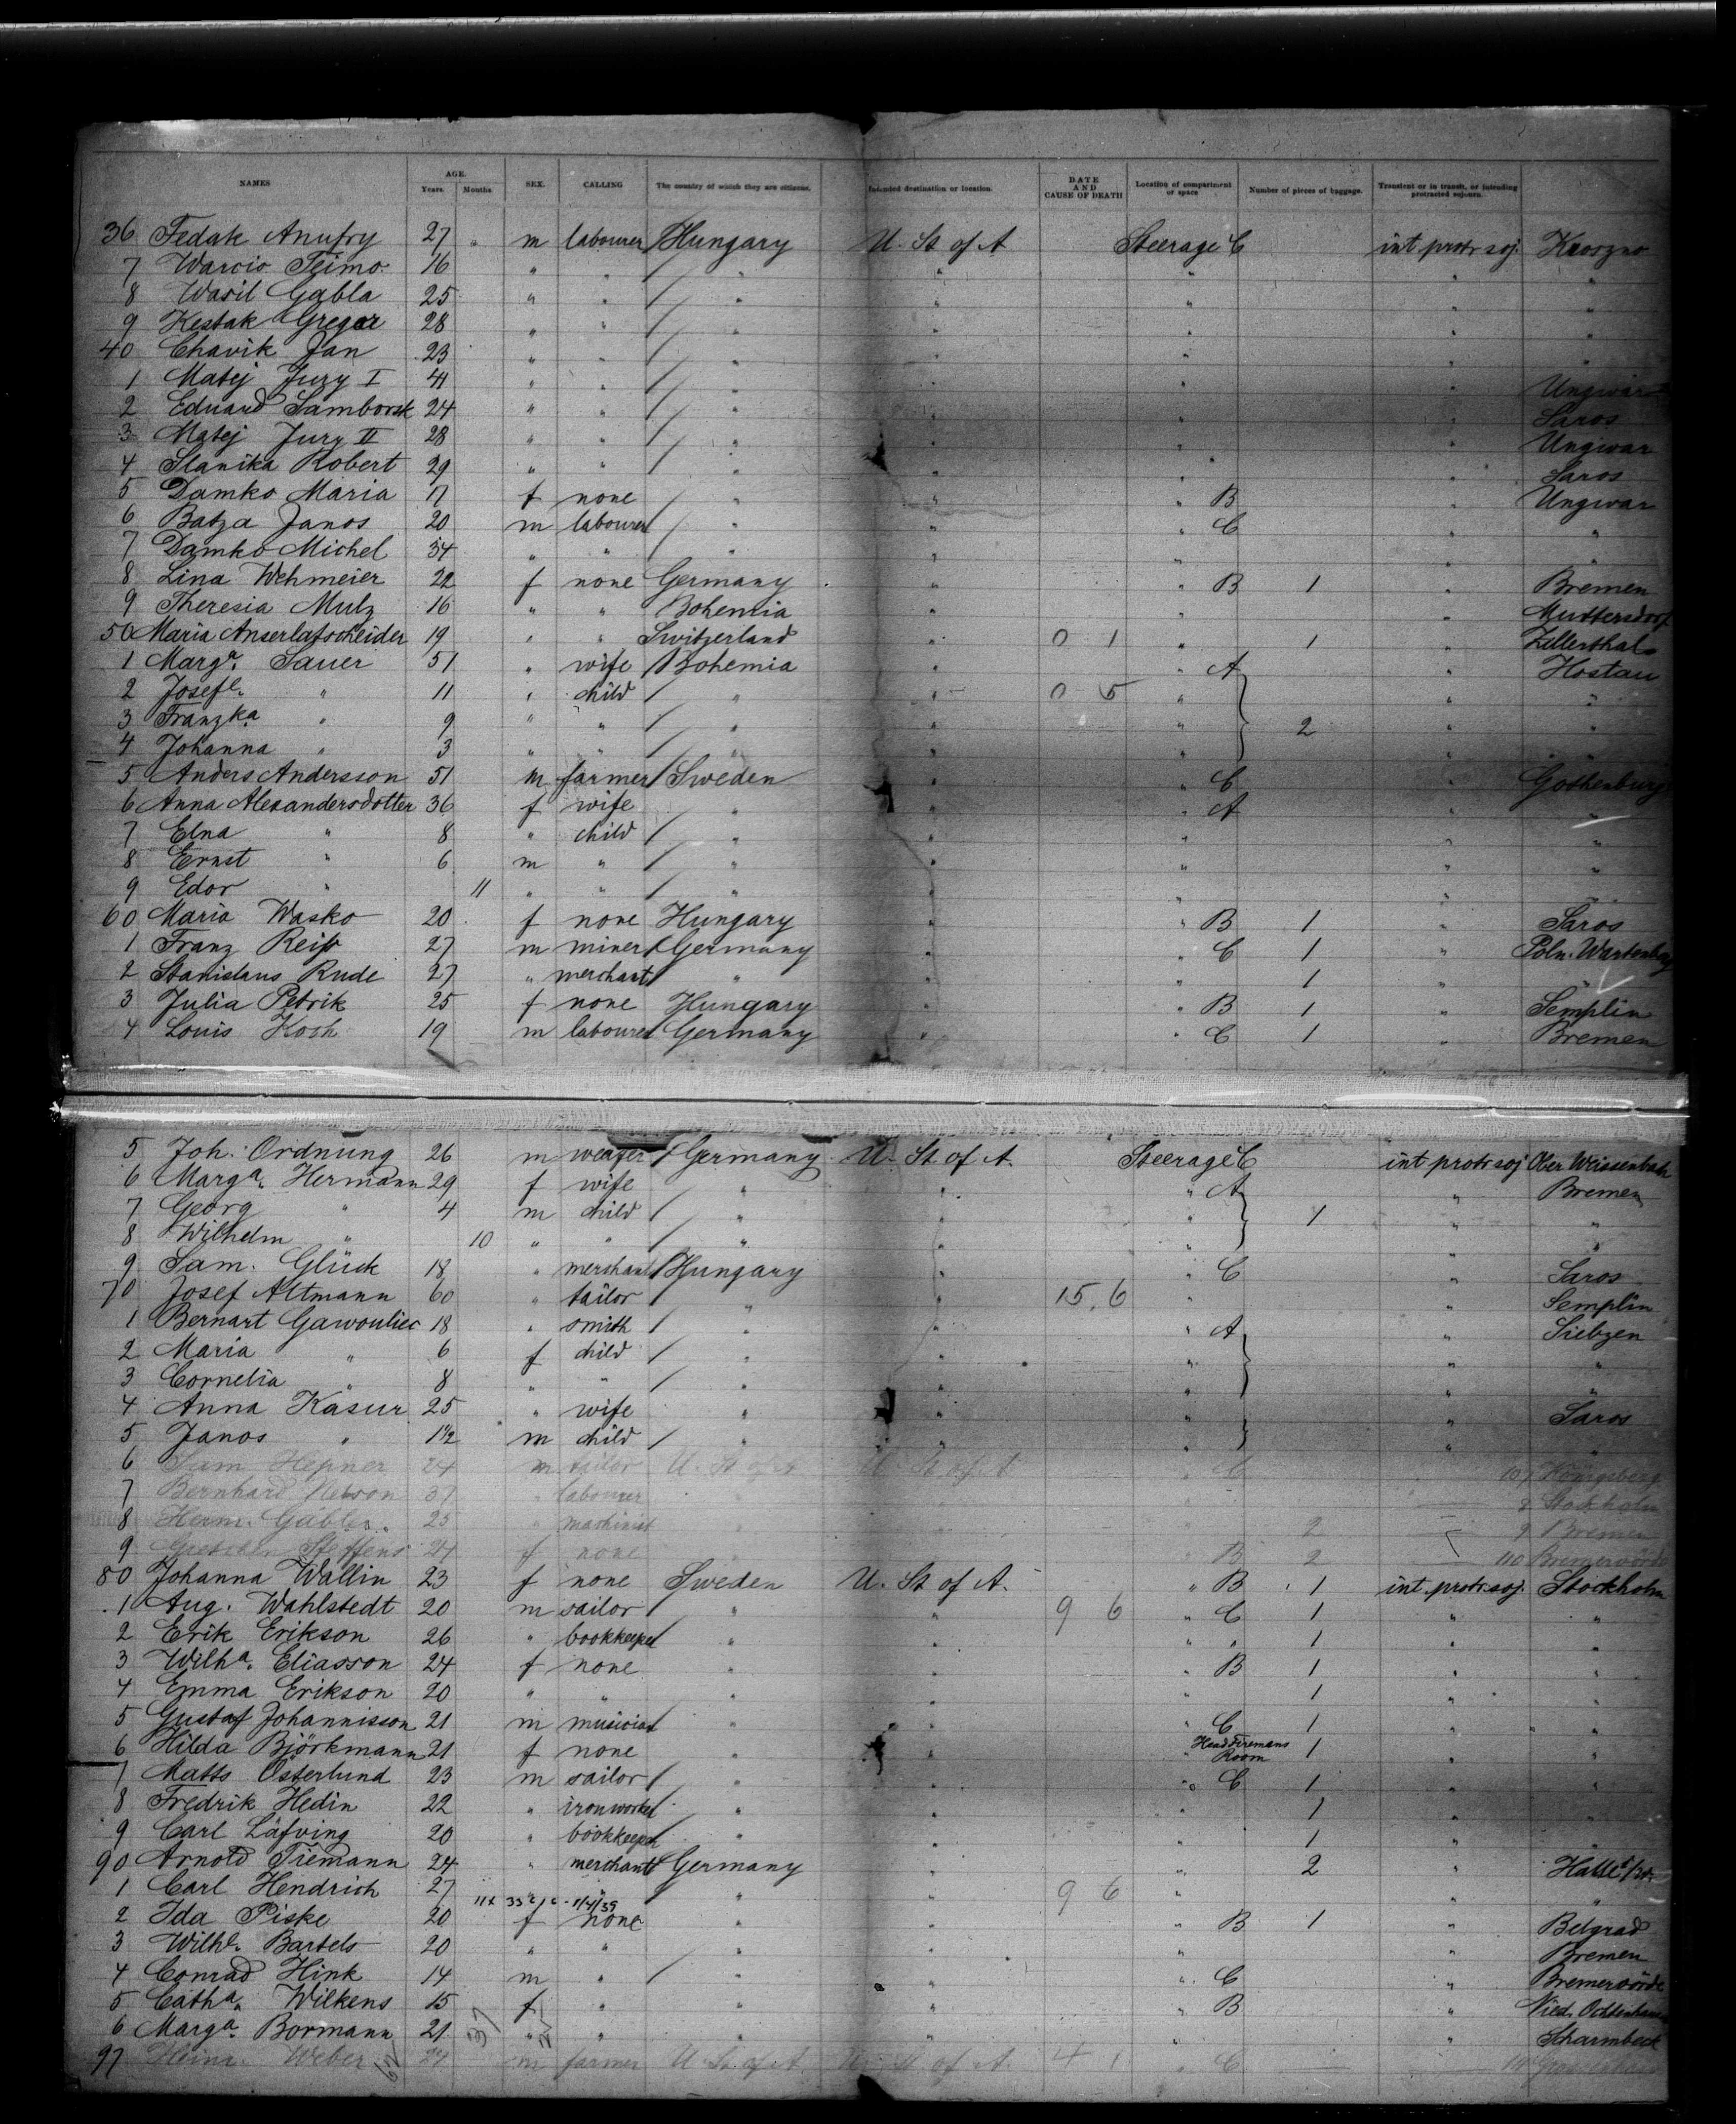 NAMES AGE. Years. Months. SEX. CALLING The country of which they are citizens. Intended destination or location. DATE AND CAUSE OF DEATH Location of compartment or space Number of pieces of baggage. Transient or in transit, or intending protracted sojourn.
36 Fedak Anufry 27 " m labourer / Hungary U. St of A Steerage C int. protr. soj. Kroszno
7 Warcio Teimo 16 " " / " " " " "
8 Wasil Gabla 25 " " / " " " " "
9 Kestak Gregor 28 " " / " " " " "
40 Chavik Jan 23 " " / " " " " "
1 Matej Jury I 41 " " / " " " " Ungwar
2 Eduard Samborsk 24 " " / " " " " Saros
3 Matej Jury II 28 " " / " " " " Ungwar
4 Slanika Robert 29 " " / " " " " Saros
5 Damko Maria 17 f none / " " " B " Ungwar
6 Batza Janos 20 m labourer / " " " C " "
7 Damko Michel 34 " " / " " " " "
8 Lina Wehmeier 22 f none Germany " " B 1 " Bremen
9 Theresia Mulz 16 " " Bohemia " " " Muttersdorf
50 Maria Anserlatscheider 19 " " Switzerland " 0 1 " 1 " Zillerthal
1 Marga. Sauer 51 " wife / Bohemia " " A " Hostau
2 Josefe. " 11 " child / " " 0 5 " " "
3 Franzka " 9 " " / " " " 2 " "
4 Johanna " 3 " " / " " " " "
5 Anders Andersson 51 m farmer / Sweden " " C " Gothenburg
6 Anna Alexandersdotter 36 f wife " " " A " "
7 Elna " 8 " child / " " " " "
8 Ernst " 6 m " / " " " " "
9 Edor " 11 " " / " " " " "
60 Maria Wasko 20 f none Hungary " " B 1 " Saros
1 Franz Reiß 27 m miner / Germany " " C 1 " Poln. Wartenberg
2 Stanislaus Rude 27 " merchant / " " " 1 " "
3 Julia Petrik 25 f none Hungary " " B 1 " Semplin
4 Louis Kosh 19 m labourer / Germany " " C 1 " Bremen
5 Joh. Ordnung 26 m weafer / Germany U. St of A. Steerage C int. protr. soj Ober Weissenbach
6 Marga. Hermann 29 f wife " " " A " Bremen
7 Georg " 4 m child / " " " 1 " "
8 Wilhelm " 10 " " / " " " " "
9 Sam. Glück 18 " merchant / Hungary " " C " Saros
70 Josef Altmann 60 " tailor / " " 15. 6 " " Semplin
1 Bernart Gawouliec 18 " smith / " " " A " Siebzen
2 Maria " 6 f child / " " " " "
3 Cornelia " 8 " " / " " " " "
4 Anna Kasur 25 " wife " " " " Saros
5 Janos " 1 1/2 m child / " " " " "
6 Sam Hepner 24 m tailor U. St of A U. St of A " C 107 Königsberg
7 Bernhard Nelson 37 " labourer " " " 8 Stockholm
8 Herm. Gäbler 25 " machinist " " " 2 9 Bremen
9 Gretchen Steffens 24 f none " " " B 2 110 Bremervörde
80 Johanna Wallin 23 f none Sweden U. St of A. " B 1 int. protr. soj. Stockholm
1 Aug. Wahlstedt 20 m sailor / " " 9 6 " C 1 " "
2 Erik Erikson 26 " bookkeeper / " " " " 1 " "
3 Wilha. Eliasson 24 f none " " " B 1 " "
4 Emma Erikson 20 " " " " " 1 " "
5 Gustaf Johannisson 21 m musician / " " " C 1 " "
6 Hilda Björkmann 21 f none " " " Head Firemans Room 1 " "
7 Matts Österlund 23 m sailor / " " " C 1 " "
8 Fredrik Hedin 22 " ironworker / " " " 1 " "
9 Carl Läfving 20 " bookkeeper / " " " 1 " "
90 Arnold Tiemann 24 " merchant / Germany " " 2 " Halle
1 Carl Hendrich 27 " " / " " 9 6 " " "
2 Ida Piske 20 f none " " " B 1 " Belgrad
3 Wilhe. Bartels 20 " " " " " " Bremen
4 Conrad Hink 14 m " / " " " C " Bremervörde
5 Catha. Wilkens 15 f " " " " B " Nied. Ochtenhausen
6 Marga. Bormann 21 " " " " " " Scharmbeck
97 Heinr. Weber 24 m farmer U. St. of A U. St of A. 4 1 " C
37